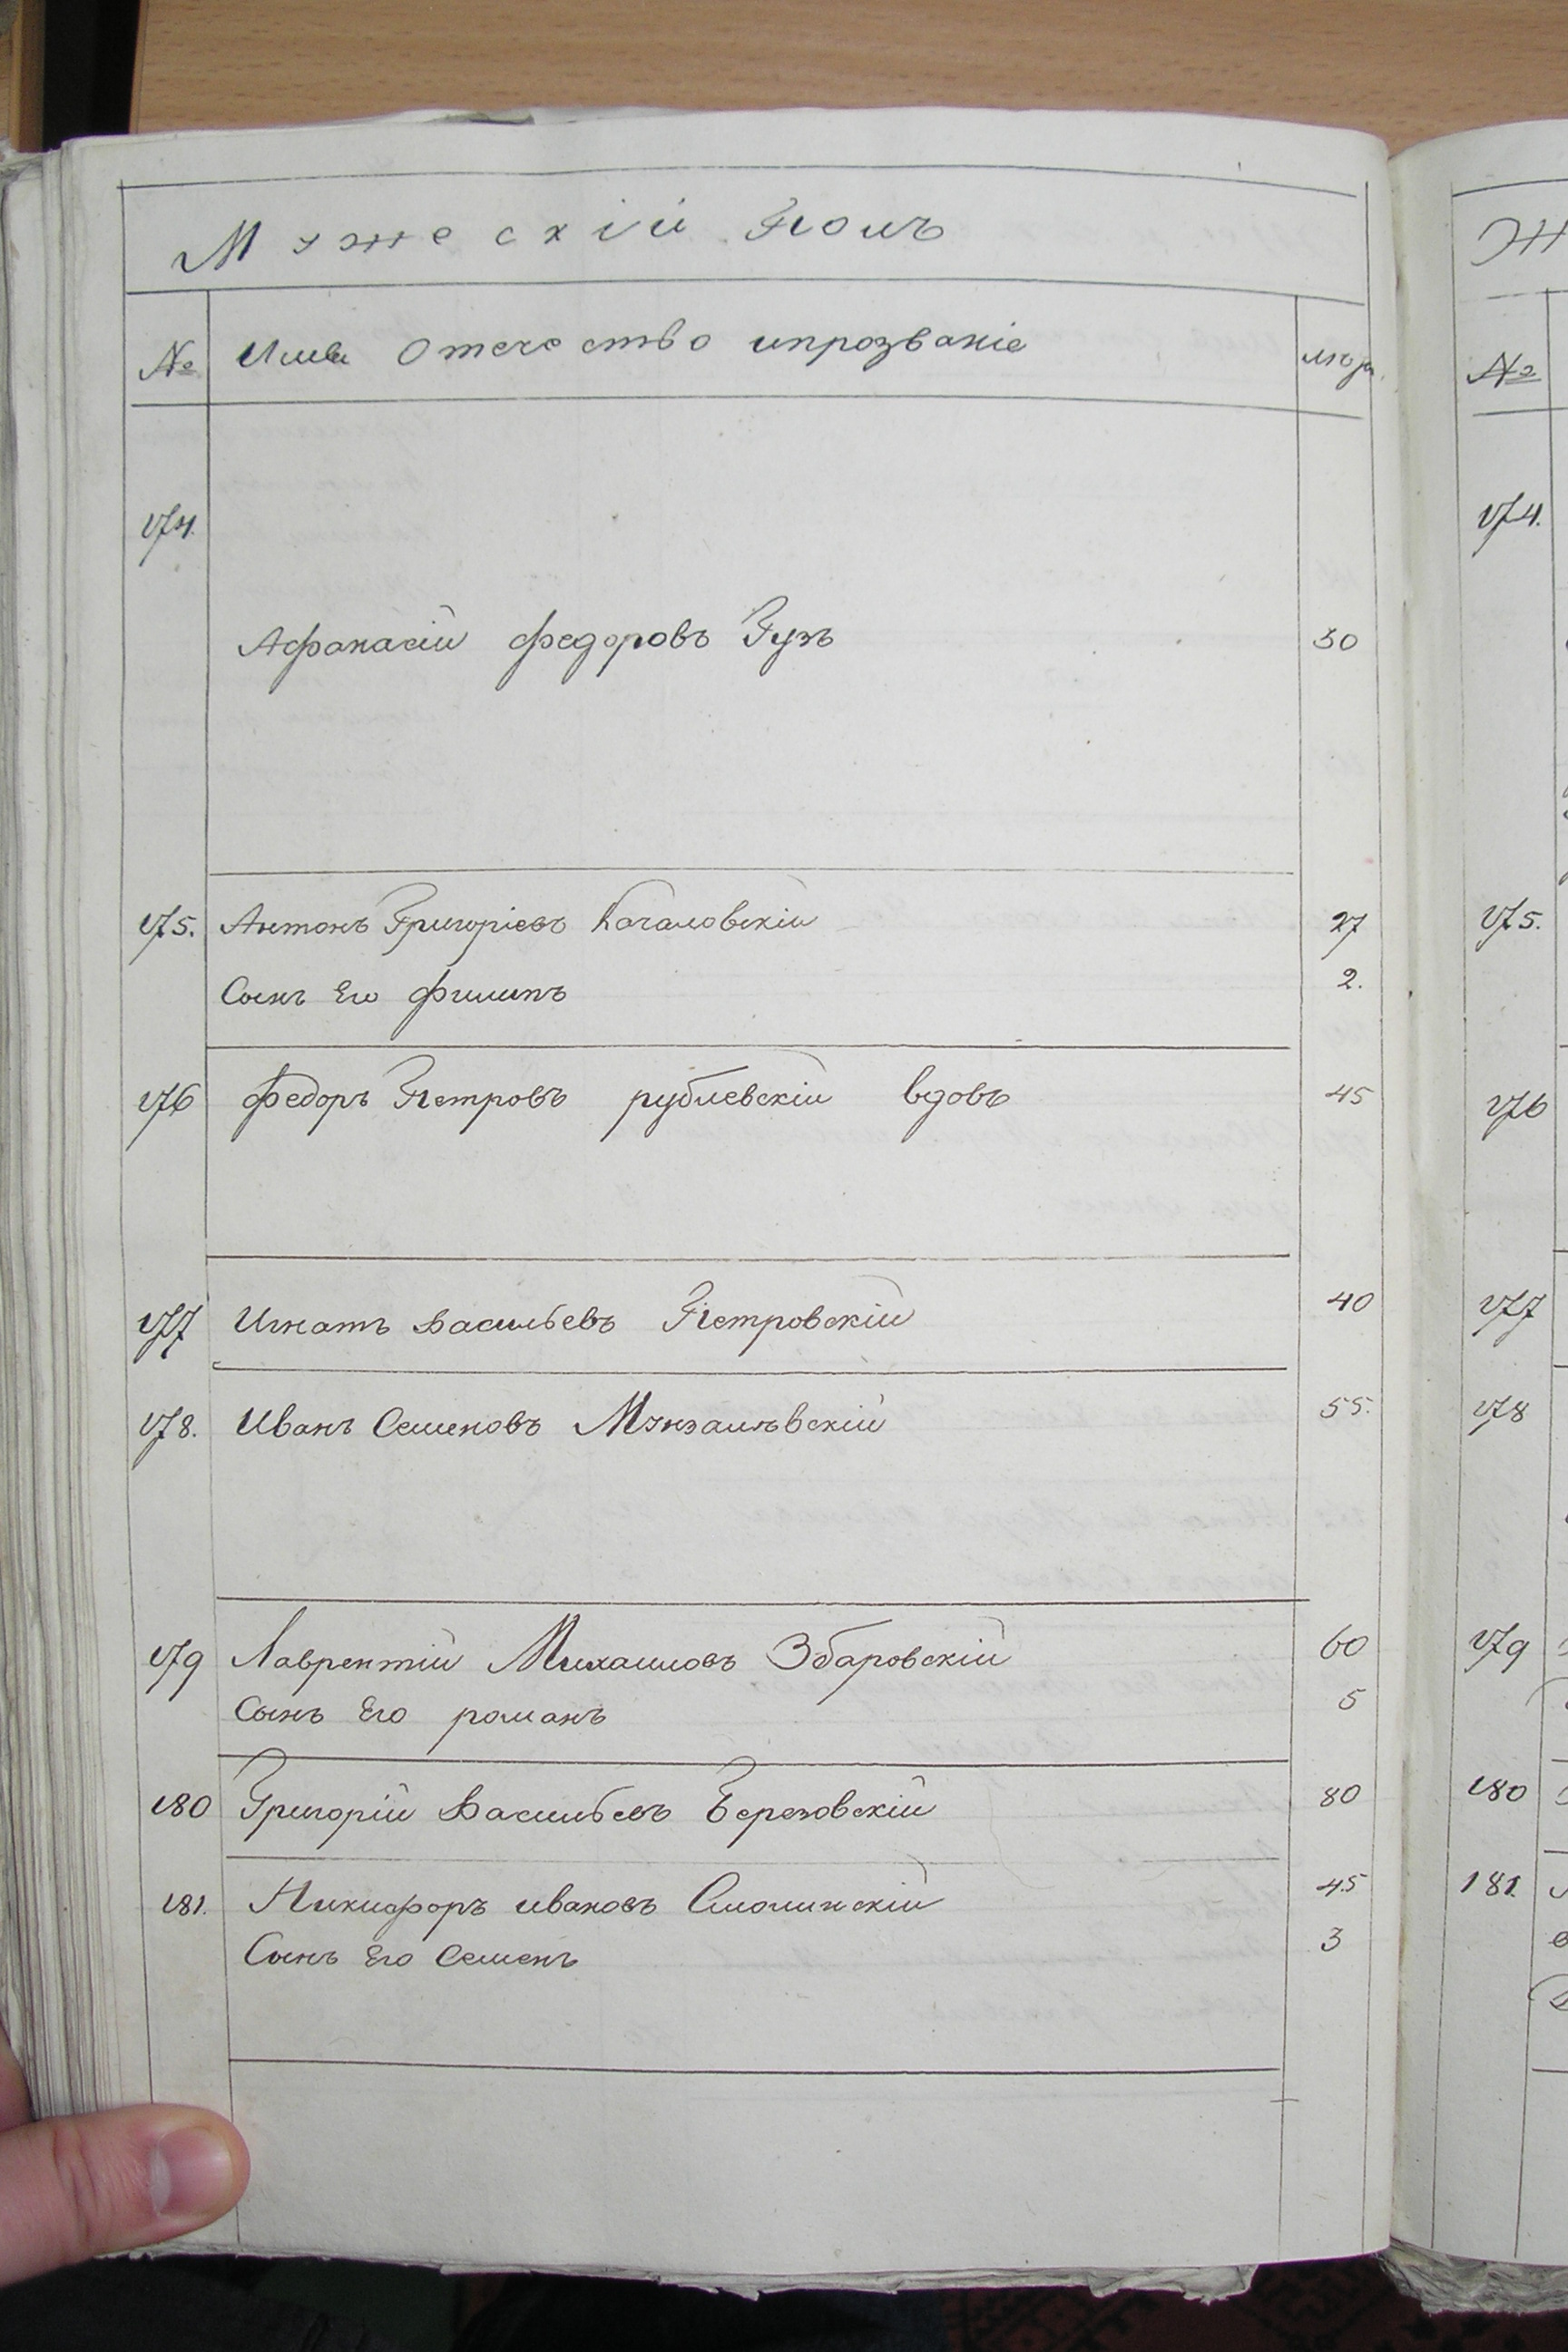 Мужескій Полъ
№ Имя Отечество ипрозваніе лѣта
174.
Афанасій Федоровъ Гузъ 30
175. Антонъ Григоріевъ Качаловскій 27
Сынъ Его Филипъ 2.
176 Федоръ Петровъ рублевскій вдовъ 45
177 Игнатъ Васильевъ Петровскій 40
178. Иванъ Семеновъ 55.
179 Лаврентій Михаиловъ Збаровскій 60
Сынъ Его романъ 5
180 Григорій Васильевъ Березовскій 80
181. Никифоръ ивановъ Смолинскій 45
Сынъ Его Семенъ 3
Ж
№
174.
175.
176
177
178
179
180
181.